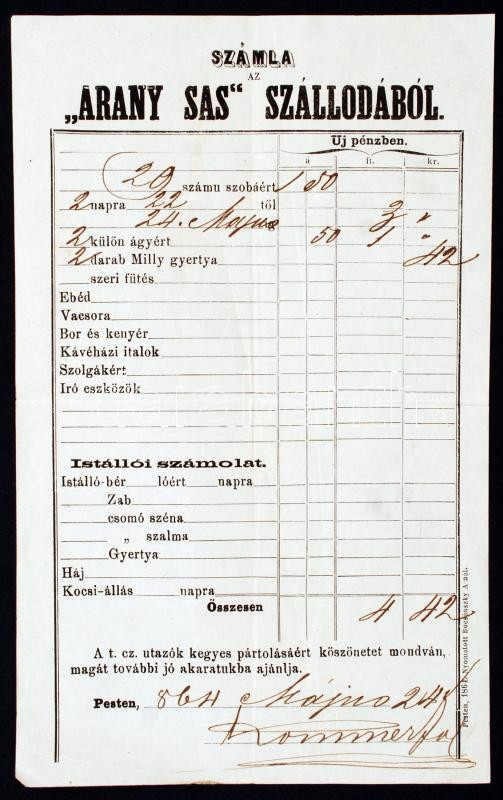 SZÁMLA
AZ
„ARANY SAS“ SZÁLLODÁBÓL.
Uj pénzben.
á ft. kr.
20 számu szobáért 1 50
2 napra 22 től 3 „
24. Majus
2 külön ágyért 50 1 „
2 darab Milly gyertya 42
szeri fütés
Ebéd
Vacsora
Bor és kenyér
Kávéházi italok
Szolgákért
Iró eszközök
Istállói számolat.
Istálló-bér lóért napra
Zab
csomó széna
„ szalma
Gyertya
Háj
Kocsi-állás napra
Összesen 4 42
A t. cz. utazók kegyes pártolásáért köszönetet mondván,
magát további jó akaratukba ajánlja.
Pesten, 864 Május 24
Pesten, 1864. Nyomatott Bucsánszky A-nál.